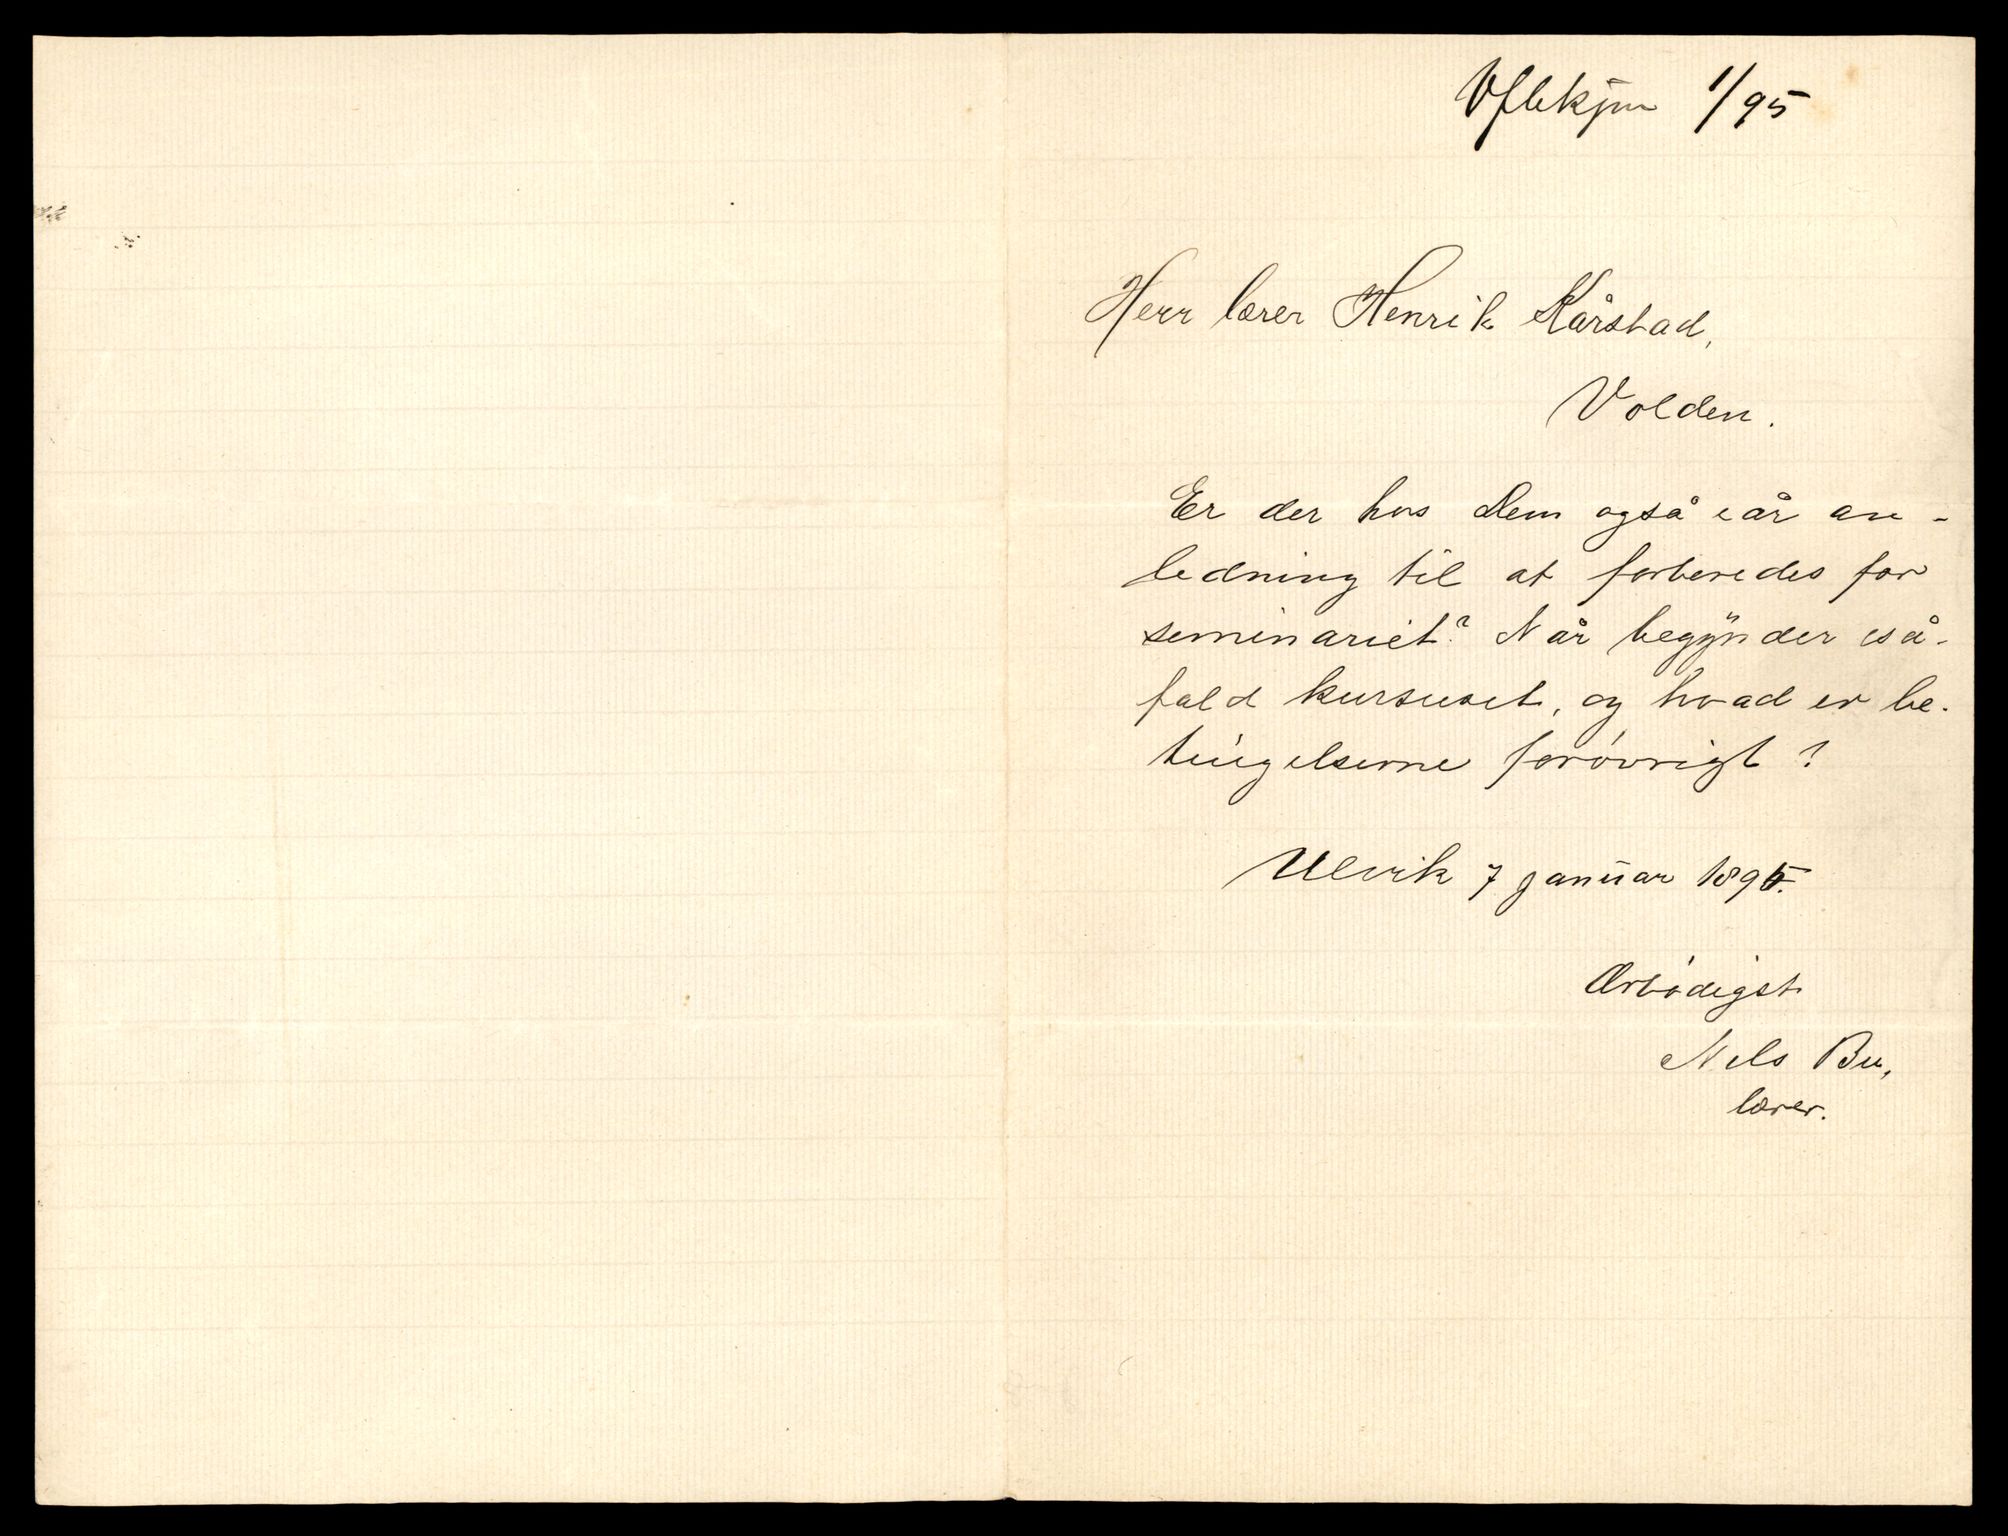 1/95
Herr lærer Henrik Kårstad,
Volden.
Er der hos Dem også iår an-
ledning til at forberedes for
seminariet? Når begynder iså-
fald kursuset, og hvad er be-
tingelserne forøvrigt?
Ulvik 7 januar 1895.
Ærbødigst
Nils Bu,
lærer.